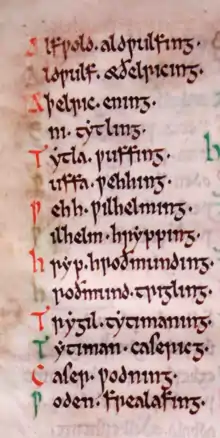 Alfƿold · aldƿulfing ·
aldƿulf · æðelricing ·
Aþelric · ening ·
ni · tytling ·
Tytla · ƿuffing ·
uffa · ƿehhing ·
ƿehh · ƿilhelming ·
ƿilhelm · hrypping ·
hryp · hroðmunding ·
hroðmund · trigling ·
Trygil · tytimaning ·
Tytiman · casericg ·
Caser · ƿodning ·
ƿoden · frealafing ·